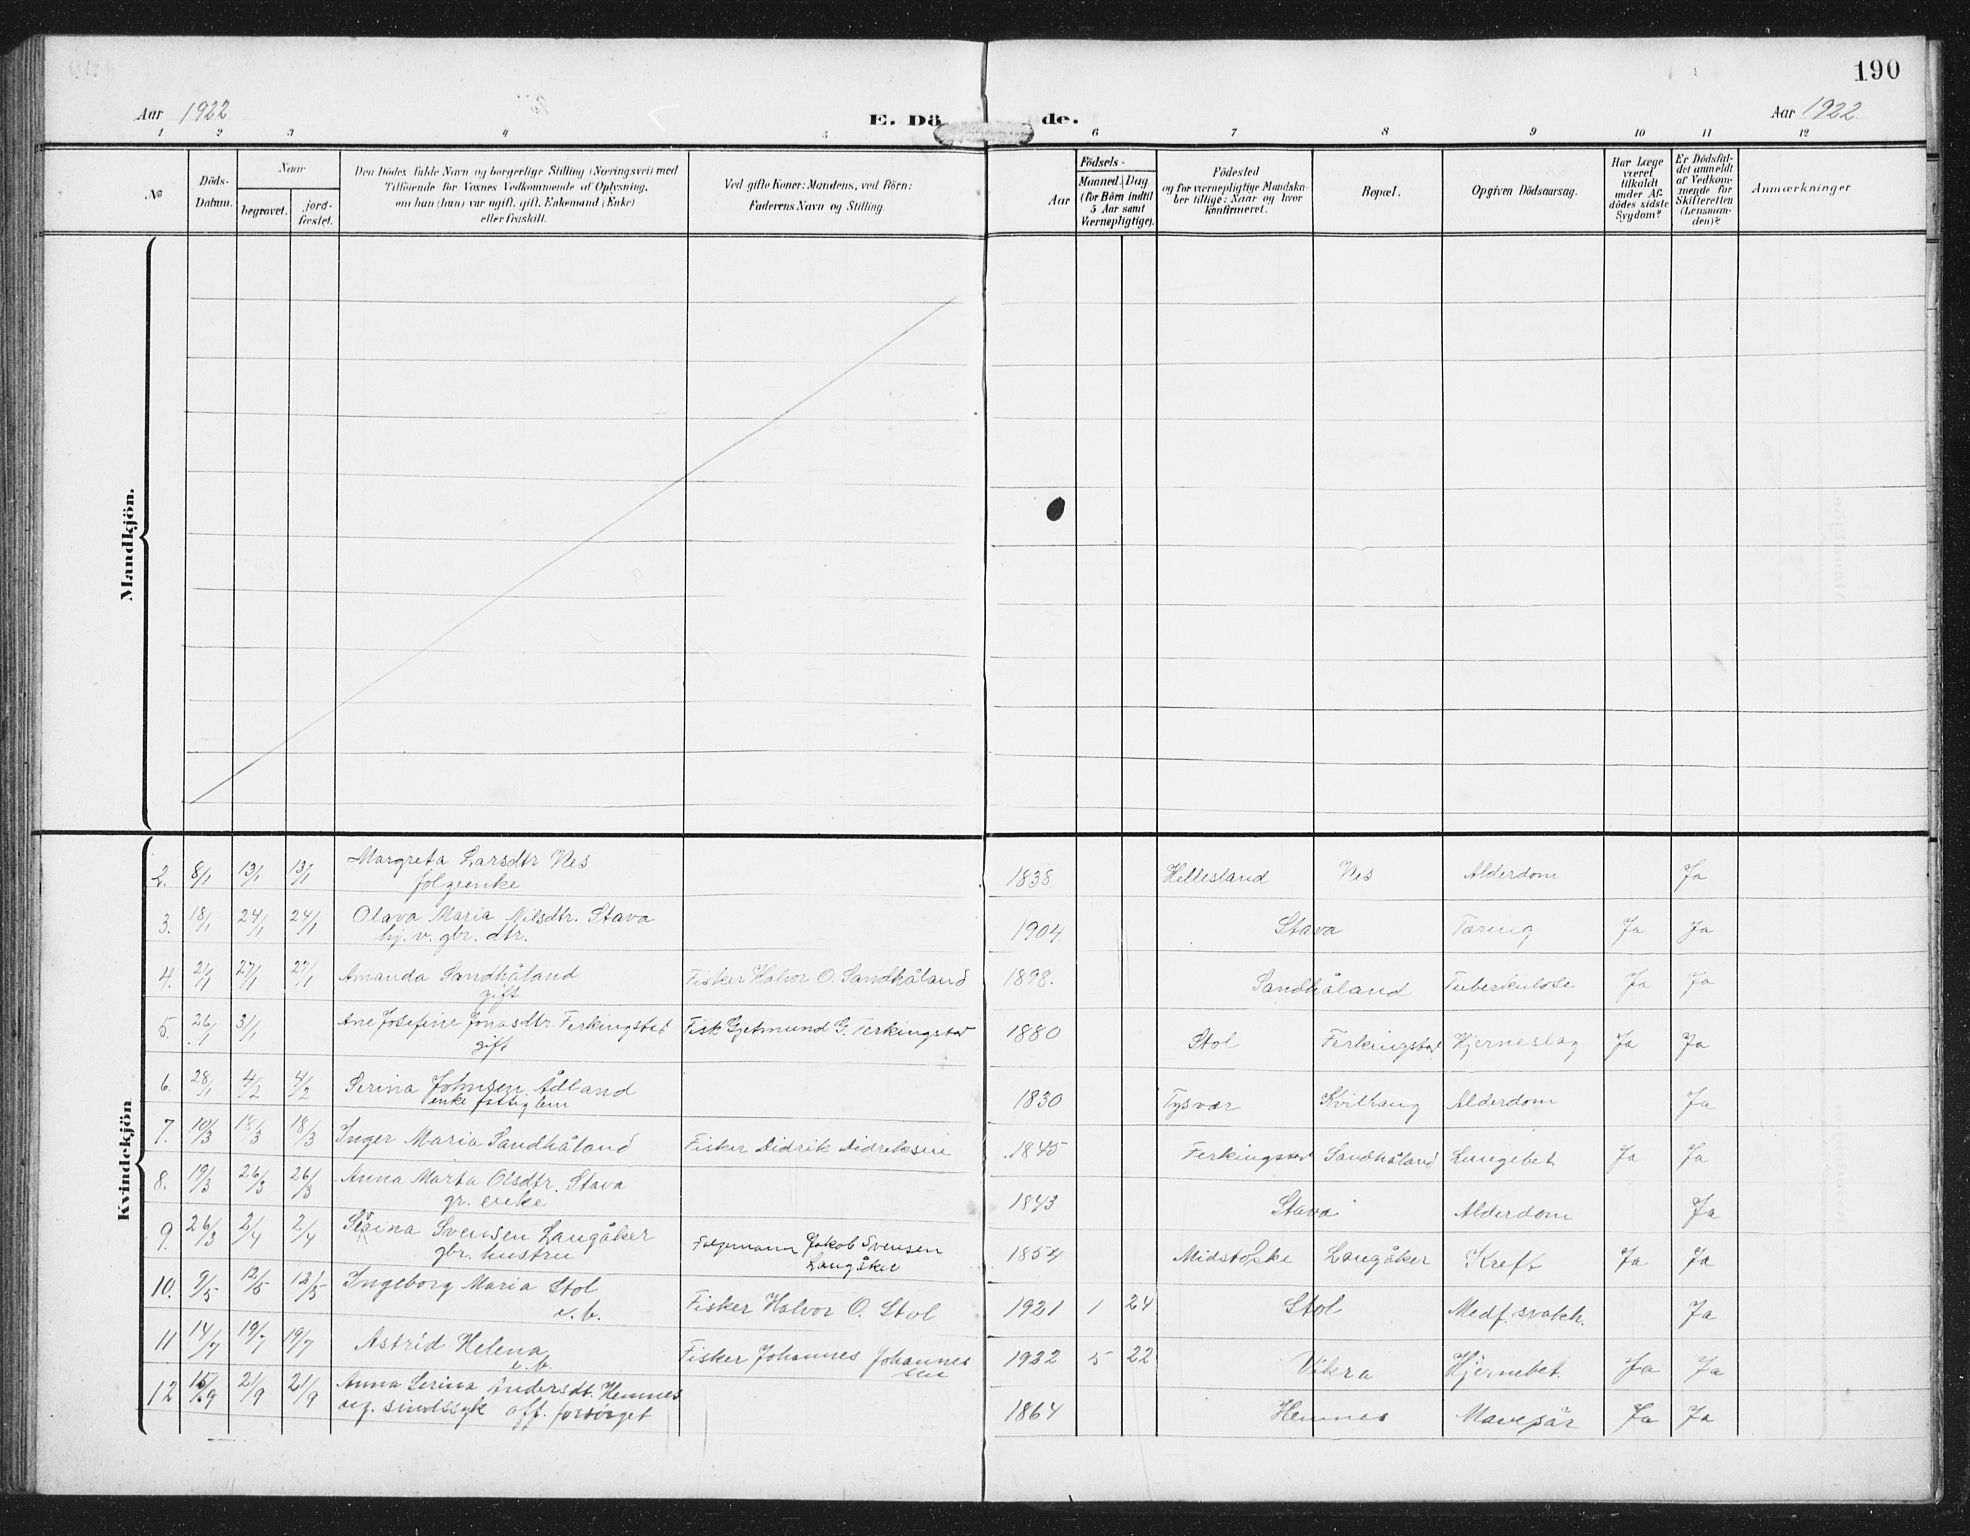 190
Aar 1922
E. Dö de.
Aar 1922
1 2 3 4 5 6 7 8 9 10 11 12
No
Döds-
Datum.
Naar
begravet.
jord-
fæstet.
Den Dödes fulde Navn og borgerlige Stilling (Næringsvei) med
Tilföiende for Voxnes Vedkommende af Oplysning,
om han (hun) var ugift, gift, Enkemand (Enke)
eller fraskilt.
Ved gifte Koner: Mandens, ved Börn:
Faderens Navn og Stilling.
Födsels-
Aar
Maaned. Dag
(for Börn indtil
5 Aar samt
Værnepligtige).
Födested
og for værnepligtige Mandska-
ber tillige: Naar og hvor
konfirmeret.
Bopæl.
Opgiven Dödsaarsag.
Har Læge
været
tilkaldt
under Af-
dödes sidste
Sygdom?
Er Dödsfal-
det anmeldt
af Vedkom-
mende for
Skifteretten
(Lensman-
den)?
Anmærkninger
Mandkjön.
Kvindekjön
2. 8/1 13/1 13/1 Margreta Larsdtr Nes 1838 Hellesland Nes Alderdom Ja
folgeenke
3. 18/1 24/1 24/1 Olava Maria Nilsdtr. Stava 1904 Stava Tæring Ja Ja
hj. v. gbr. dtr.
4. 21/1 27/1 27/1 Amanda Sandhåland Fisker Halvor O. Sandhåland 1898. Sandhåland Tuberkulose Ja Ja
gift
5. 26/1 31/1 Ane Josefine Jonasdtr. Ferkingstad Fisk Gjetmund G. Ferkingstad 1880 Stol Ferkingstad Hjerneslag Ja Ja
gift
6. 28/1 4/2 4/2 Serina Johnsen Ådland 1830 Tysvær Kvilhaug Alderdom Ja
enke fattiglem
7. 10/3 18/3 18/3 Inger Maria Sandhåland Fisker Didrik Didriksen 1845 Ferkingstad Sandhåland Lungebet Ja Ja
8. 19/3 26/3 26/3 Anna Marta Olsdtr. Stava 1843 Stava Alderdom Ja
gr. enke
9. 26/3 2/4 2/4 Serina Svensen Langåker Folgemann Jakob Svensen 1854 Midstokke Langåker Kreft Ja Ja
gbr. hustru Langåker
10. 9/5 12/5 12/5 Ingeborg Maria Stol Fisker Halvor O. Stol 1921 1 24 Stol Medf. svakh. Ja
e. b.
11 14/7 19/7 19/7 Astrid Helena Fisker Johannes Johannes 1922 5 22 Vikra Hjernebet. Ja Ja
e. b. sen
12 15/9 21/9 21/9 Anna Serina Andersdt. Hemnes 1864 Hemnes Mavesår Ja Ja
ug. sindssyk off. forsørget